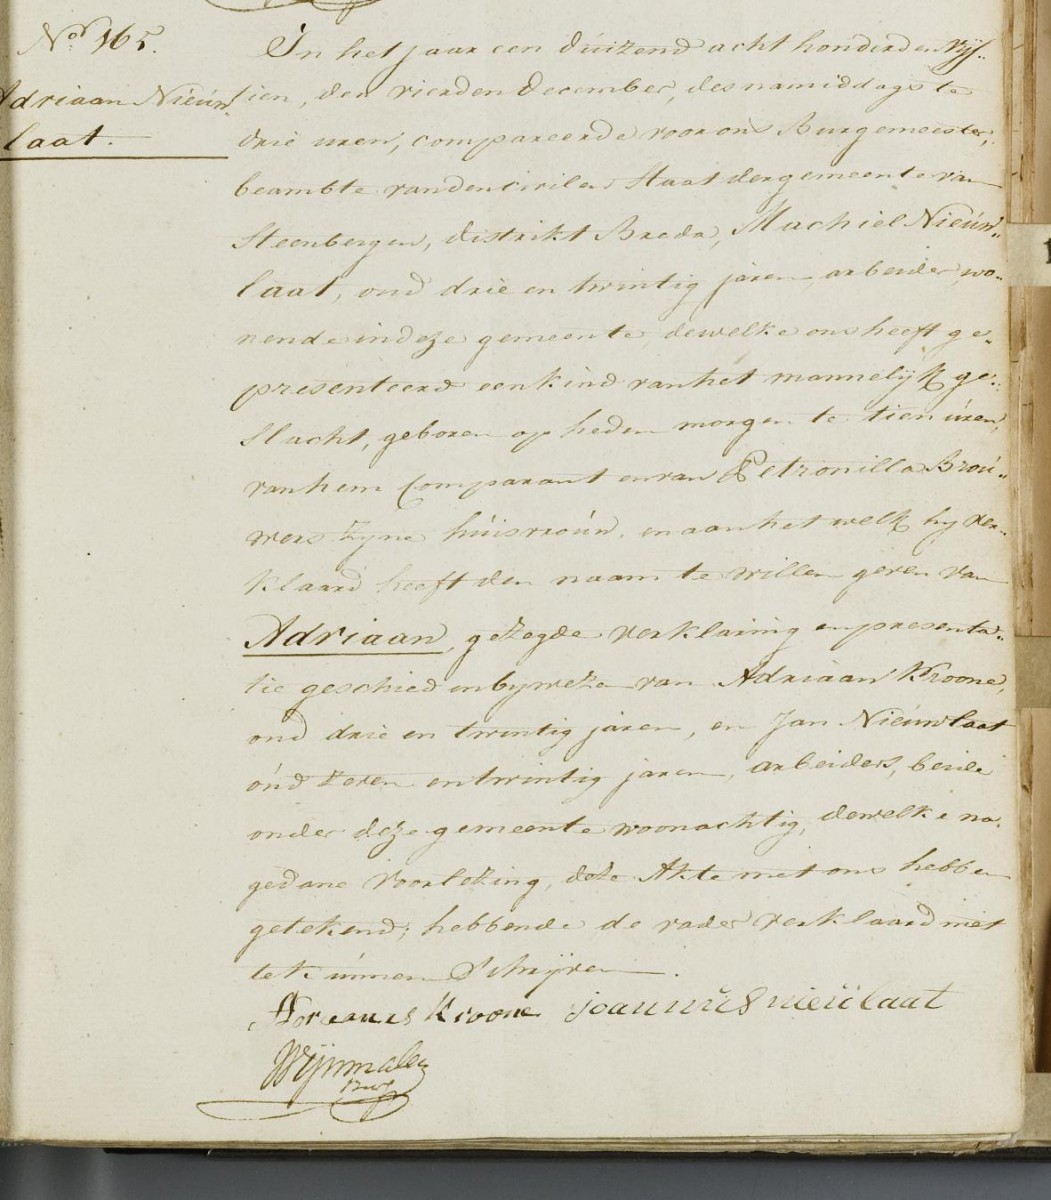 Nor 165.
Adriaan Nieúw
laat.
In het jaar een dúizend acht honderd en vijf„
tien, den vierden December, des namiddags te
drie uren, compareerde voor ons Burgemeester,
beambte van den civilen Staat der gemeente van
Steenbergen, distrikt Breda, Machiel Nieúw„
laat, oud drie en twintig jaren, arbeider, wo„
nende in deze gemeente, dewelke ons heeft ge„
presenteerd een kind van het mannelijk ge„
slacht, geboren op heden morgen te tien úren,
van hem Comparant en van Petronilla Broú„
wers zyne húisvroúw, en aan het welk hy ver„
klaard heeft den naam te willen geven van
Adriaan, gezegde verklaring en presenta„
tie geschied in bywezen van Adriaan Kroone,
oud drie en twintig jaren, en Jan Nieúwlaat
oúd zeven en twintig jaren, arbeiders, beide
onder deze gemeente woonachtig, dewelke na
gedane voorlezing, deze Akte met ons hebben
getekend; hebbende de vader verklaard niet
te kúnnen Schrijven.
Adreanus Kroone joannus nieúlaat
Wijnmalen
Burg